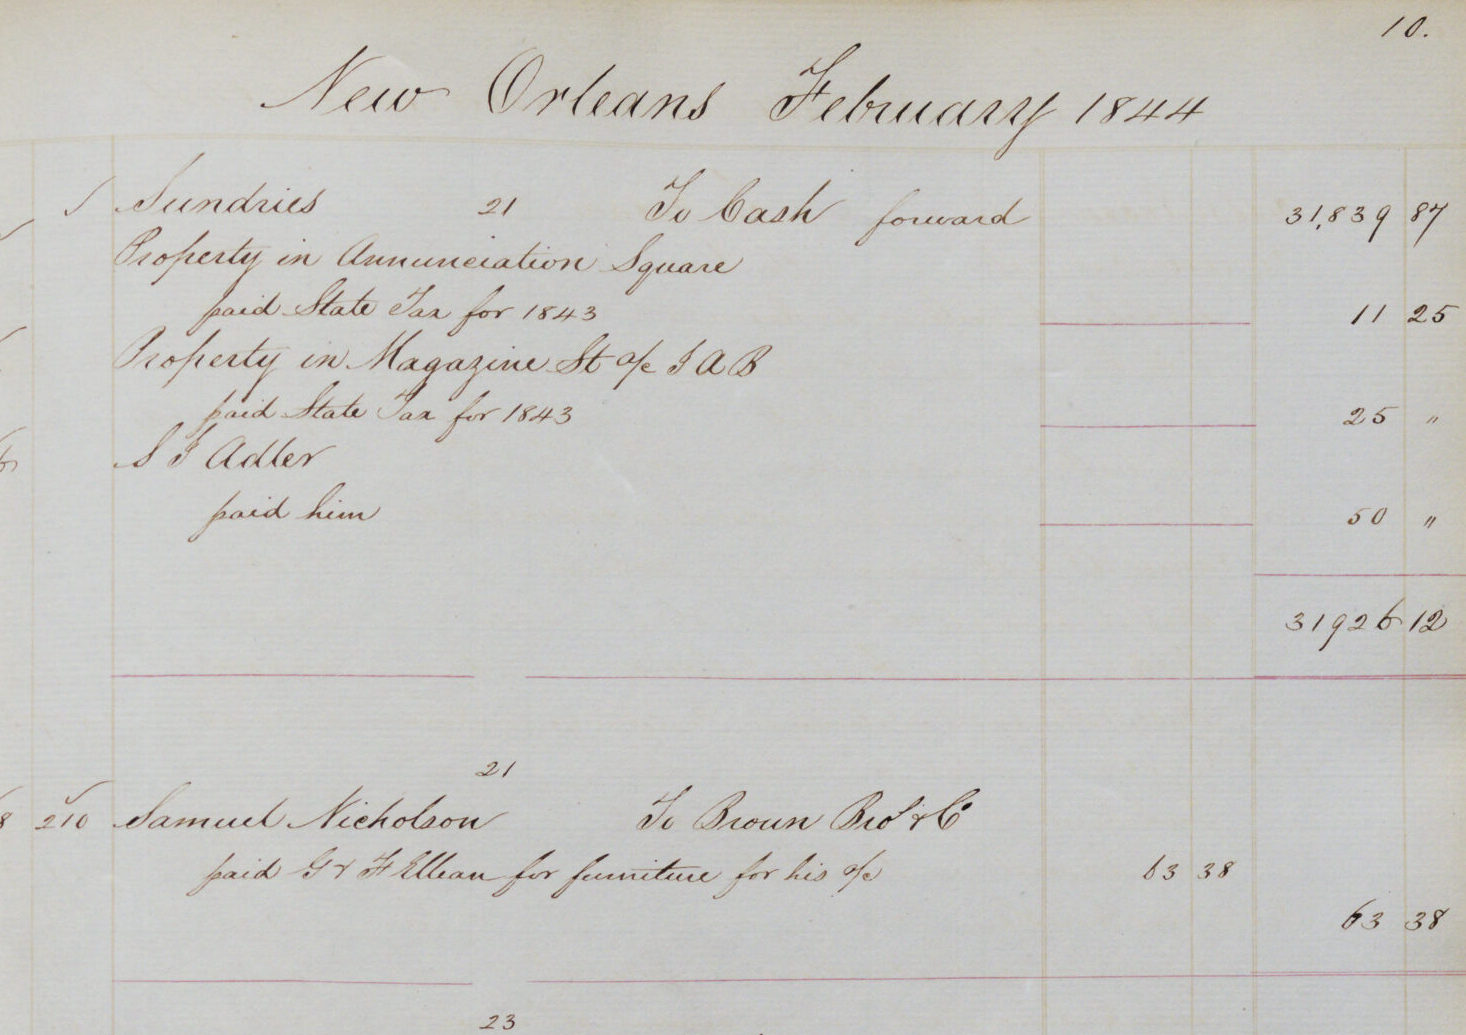 10.
New Orleans February 1844
Sundries 21 To Cash forward 31,839 87
Property in Annunciation Square
paid State Tax for 1843 11 25
Property in Magazine St a/c J A B
paid State Tax for 1843 25 "
S J Adler
paid him 50 "
31926 12
21
8 210 Samuel Nicholson To Brown Bros & Co
paid G & F for furniture for his a/c 63 38
63 38
23